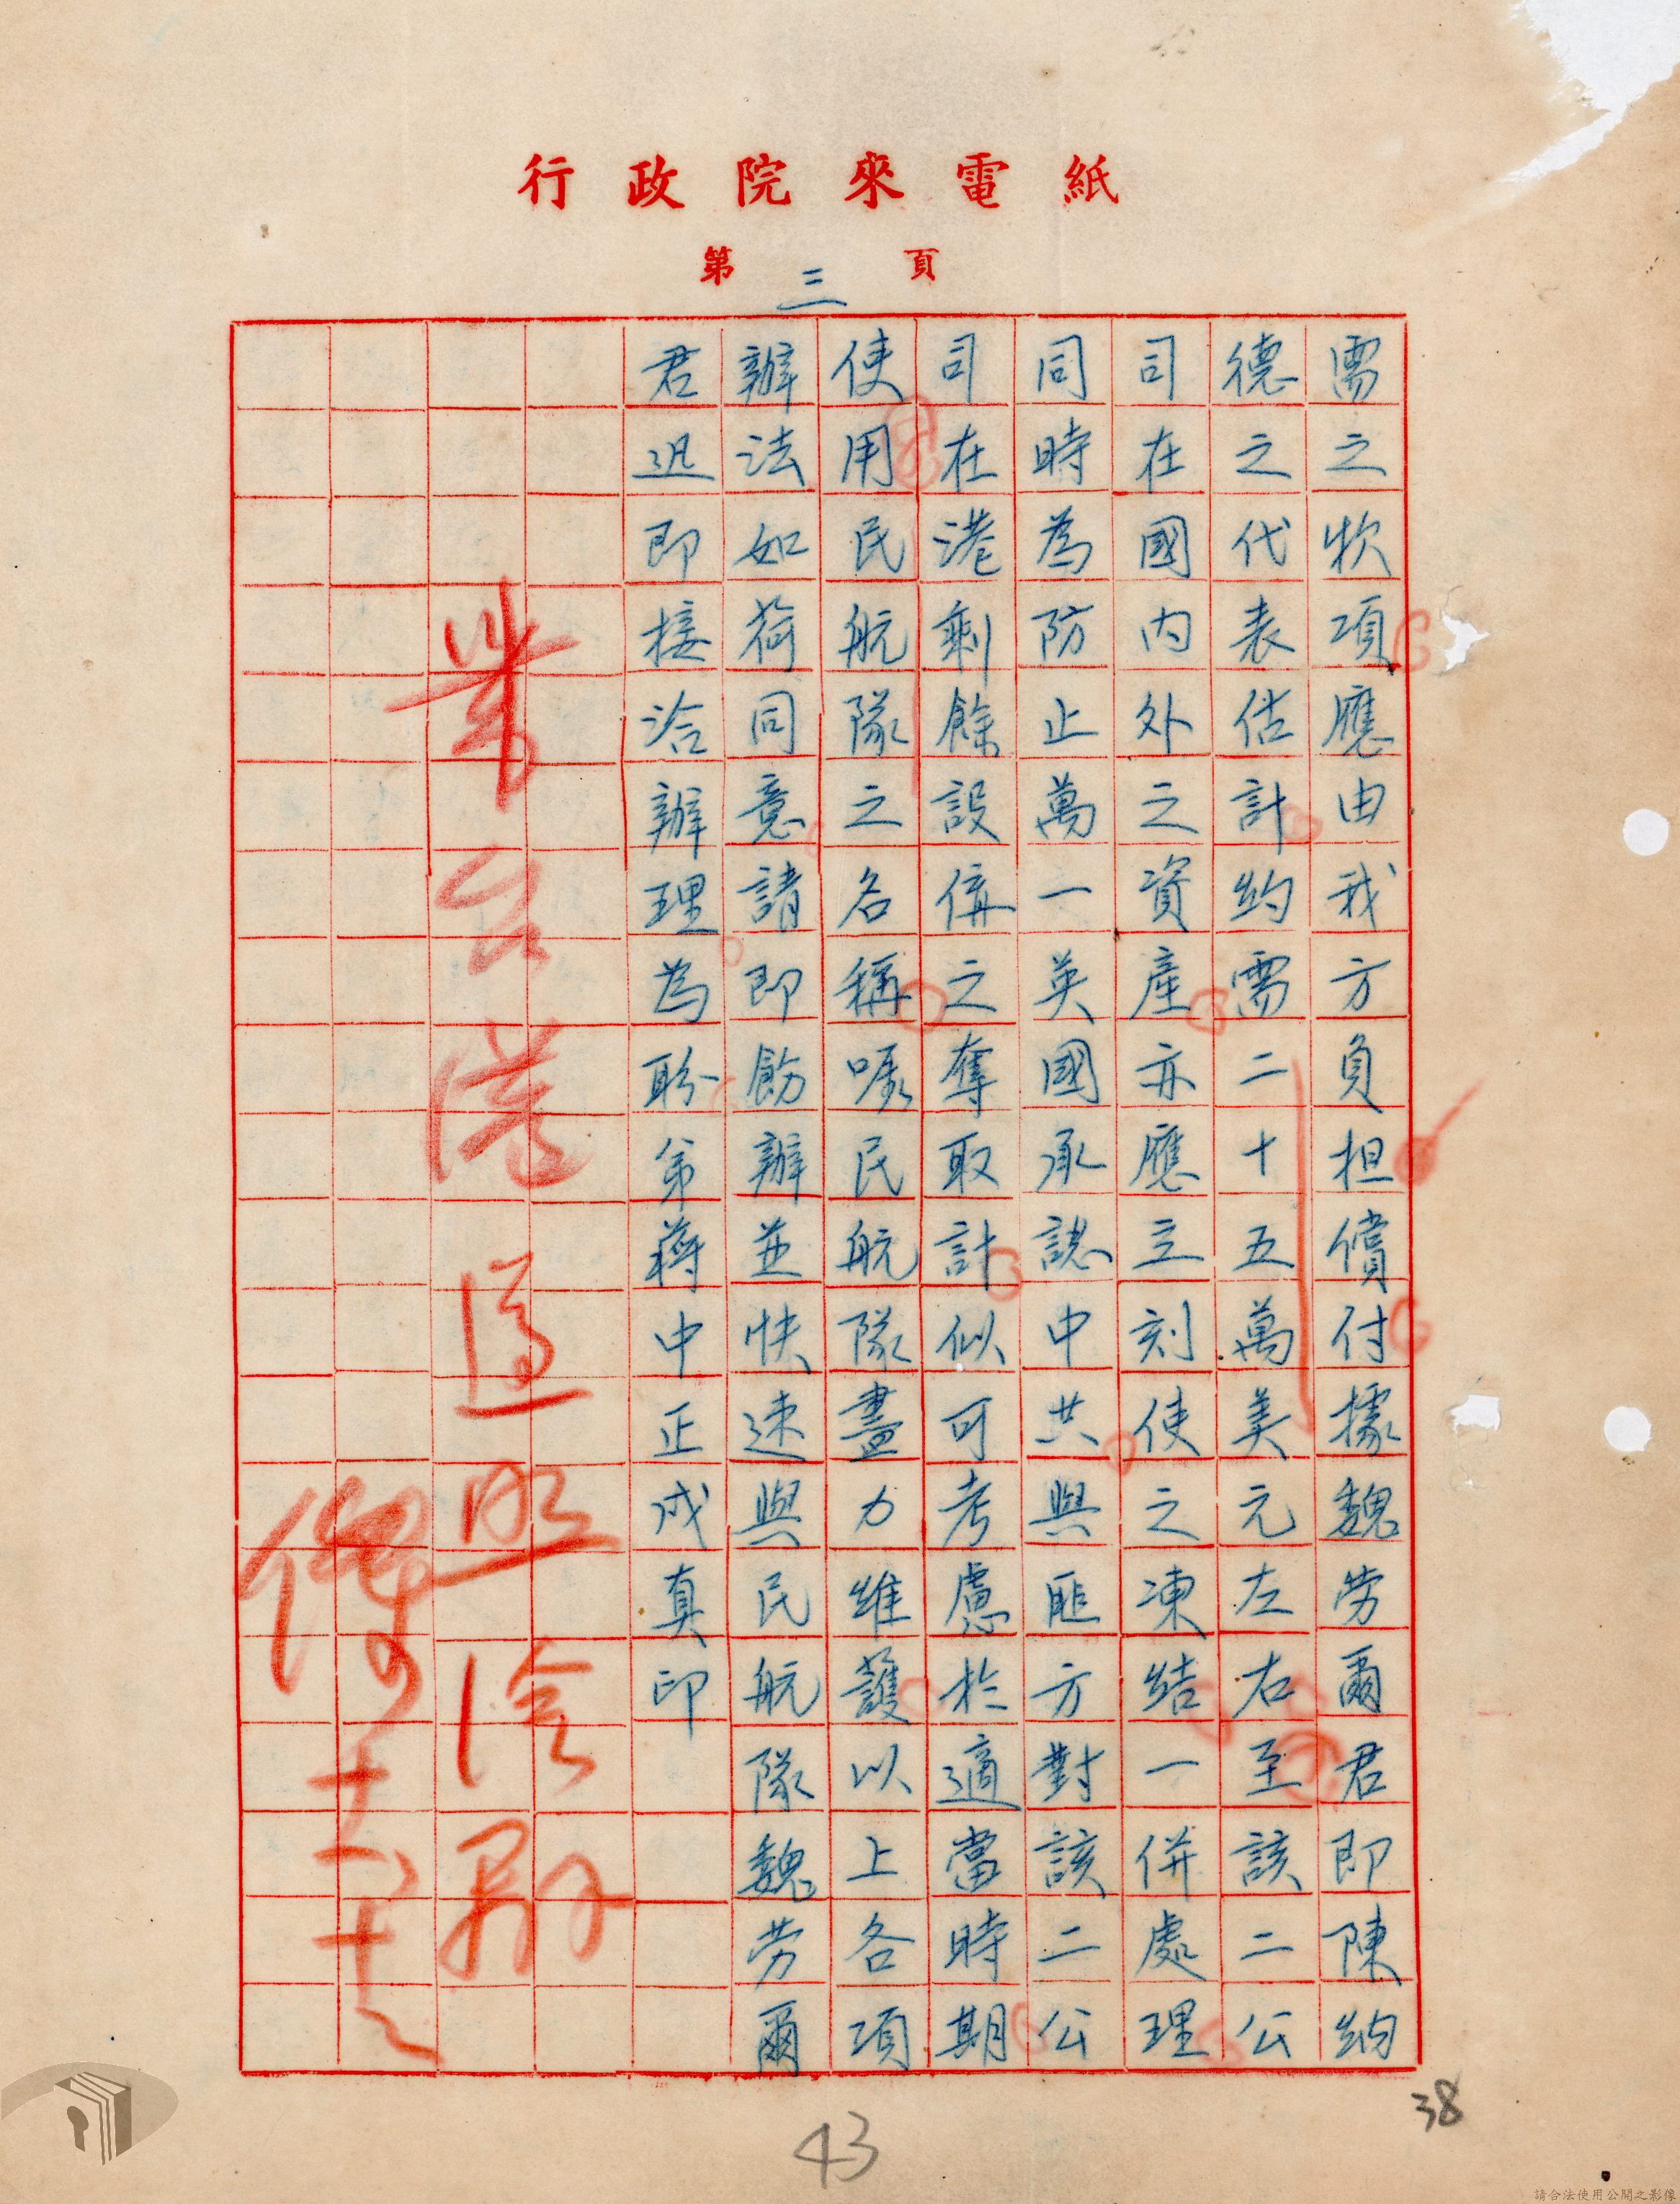 行政院來電紙
第三頁
需之欵項應由我方負担償付據魏勞爾君即陳納
德之代表估計約需二十五萬美元左右至該二公
司在國內外之資產亦應立刻使之凍結一併處理
同時為防止萬一英國承認中共與匪方對該二公
司在港剩餘設備之奪取計似可考慮於適當時期
使用民航隊之名稱嘱民航隊盡力維護以上各項
辦法如荷同意請即飭辦並快速與民航隊魏勞爾
君迅即接洽辦理為盼弟蔣中正戌真印
業在港
照洽辦
十一
43
38
請合法使用公開之影像